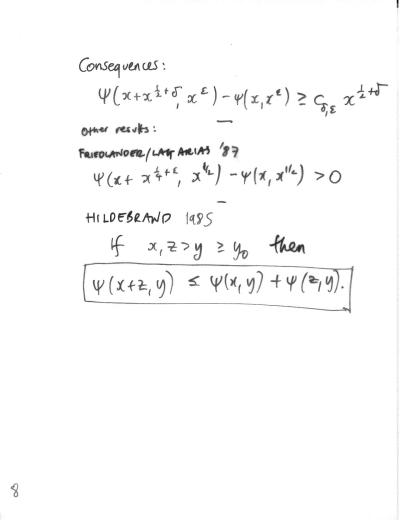 Consequences:
Ψ(x+x^{½+δ}, x^ε) − Ψ(x, x^ε) ≥ C_{δ,ε} x^{½+δ}
Other results:
FRIEDLANDER/LAGARIAS '87
Ψ(x+ x^{¼+ε}, x^{1/2}) − Ψ(x, x^{1/2}) > 0
HILDEBRAND 1985
If x, z > y ≥ y₀ then
Ψ(x+z, y) ≤ Ψ(x, y) + Ψ(z, y).
8